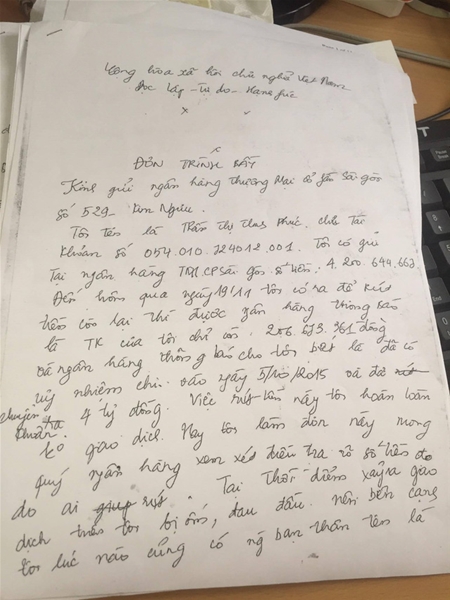 Cộng hòa xã hội chủ nghĩa Việt Nam
Độc lập - Tự do - Hạnh phúc
ĐƠN TRÌNH BÀY
Kính gửi ngân hàng thương Mại cổ phần Sài gòn
số 529 - Kim Ngưu.
Tôi tên là Trần Thị Thu Phúc, chủ Tài
khoản số 054.010.724012.001. Tôi có gửi
Tại ngân hàng TM.CP Sài gòn số tiền: 4.200.644.663
Đến hôm qua ngày 19/11 tôi có ra để rút
tiền còn lại thì được ngân hàng thông báo
là TK của tôi chỉ còn: 206.633.361 đồng
và ngân hàng thông báo cho tôi biết là đã có
uỷ nhiệm chi vào ngày 5/10/2015 và đã
chuyển ra 4 tỷ đồng. Việc rút tiền này tôi hoàn toàn
ko giao dịch. Nay tôi làm đơn này mong
quý ngân hàng xem xét điều tra rõ số tiền đó
do ai rút. Tại thời điểm xảy ra giao
dịch trên tôi bị ốm, đau đầu. nên bên cạnh
tôi lúc nào cũng có ng bạn thân tên là